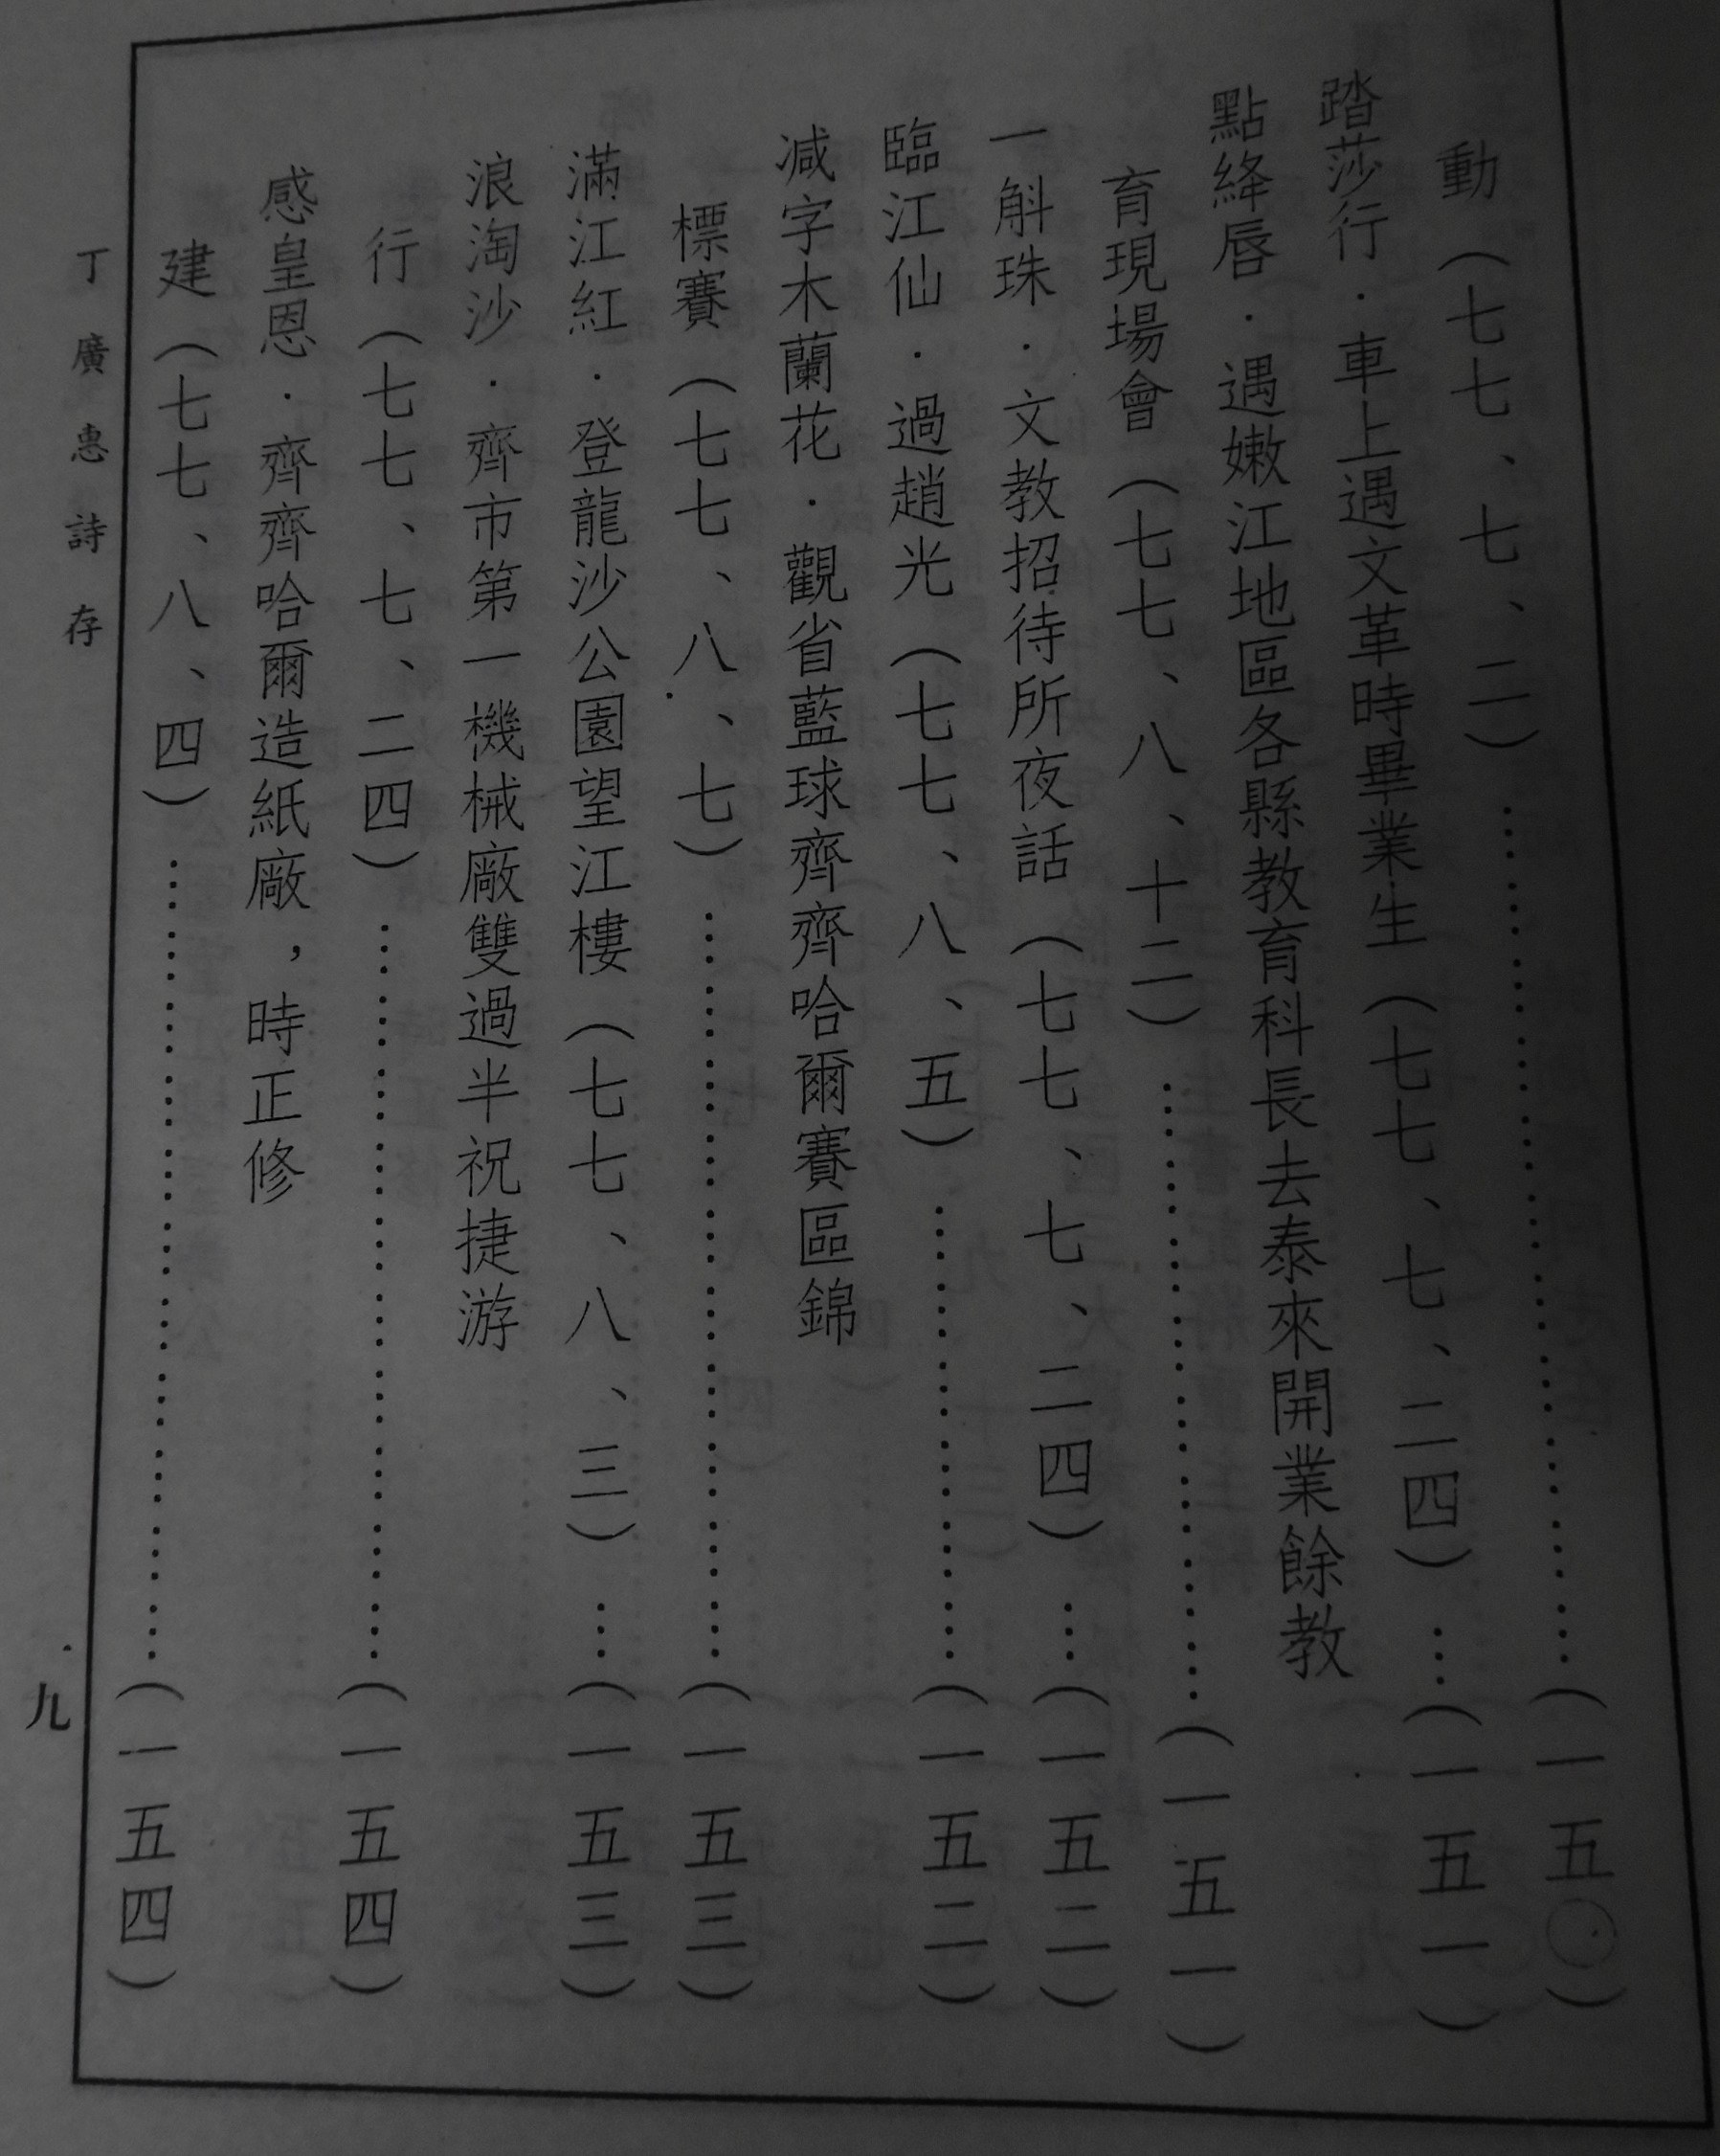 動（七七、七、二）……………………………（一五〇）
踏莎行·車上遇文革時畢業生（七七、七、二四）…（一五一）
點絳唇·遇嫩江地區各縣教育科長去泰來開業餘教
育現場會（七七、八、十二）……………………（一五一）
一斛珠·文教招待所夜話（七七、七、二四）…（一五二）
臨江仙·過趙光（七七、八、五）………………（一五二）
減字木蘭花·觀省藍球齊齊哈爾賽區錦
標賽（七七、八、七）…………………………（一五三）
滿江紅·登龍沙公園望江樓（七七、八、三）…（一五三）
浪淘沙·齊市第一機械廠雙過半祝捷游
行（七七、七、二四）…………………………（一五四）
感皇恩·齊齊哈爾造紙廠，時正修
建（七七、八、四）……………………………（一五四）
丁廣惠詩存
九